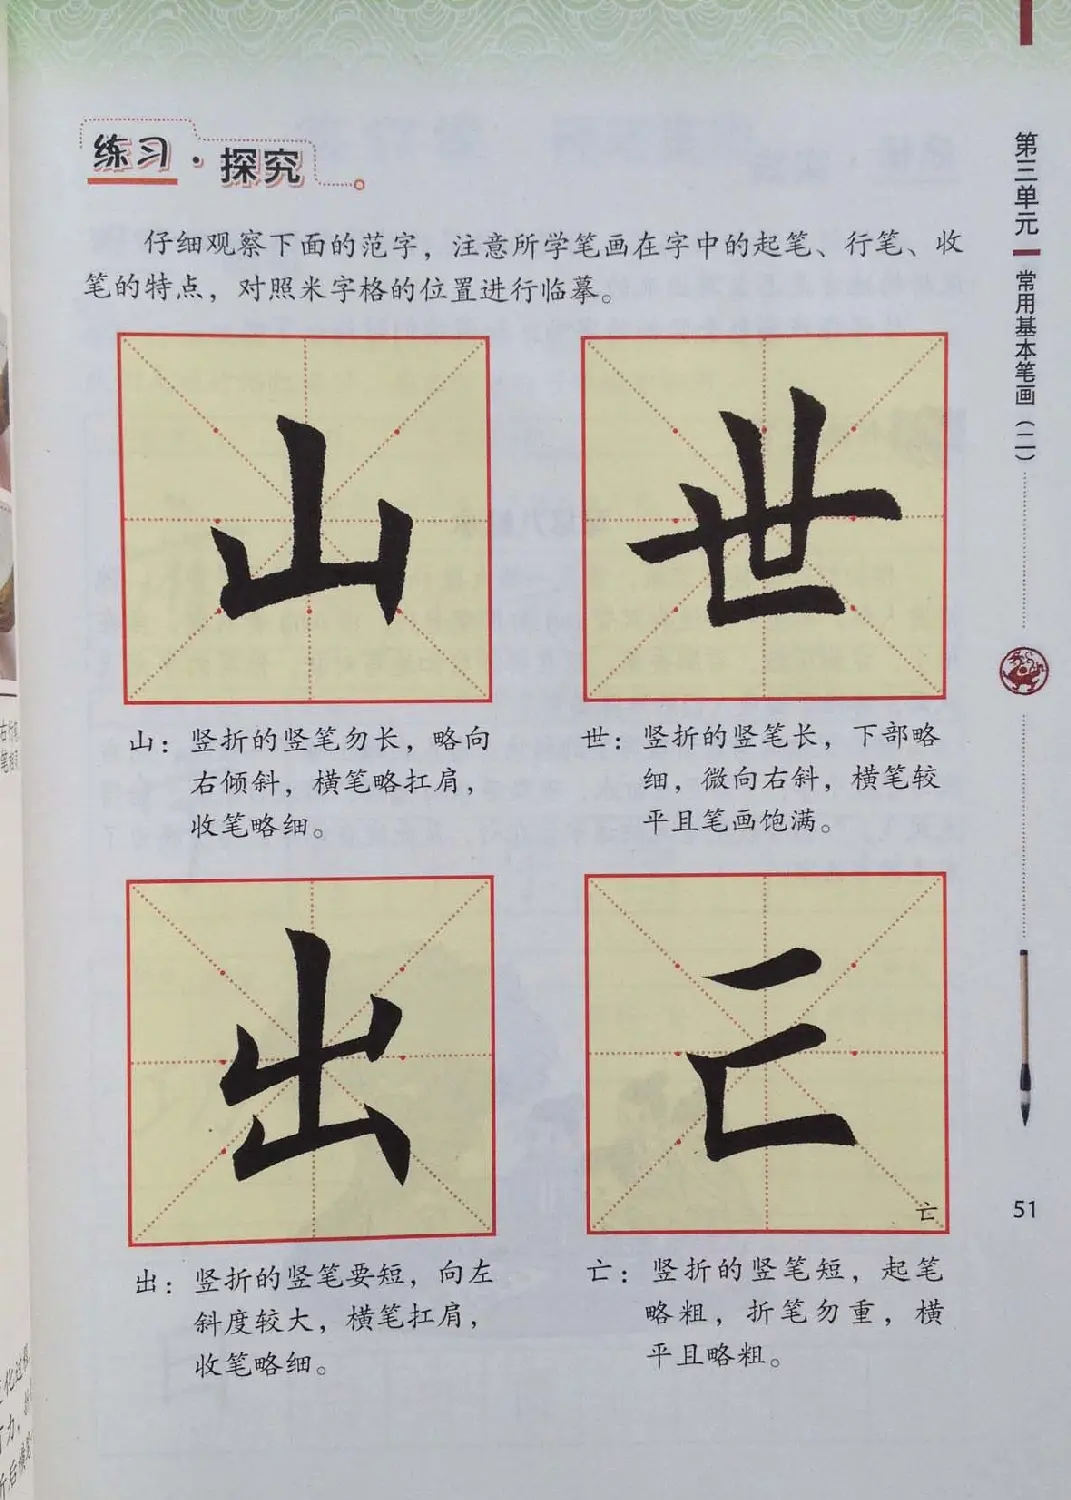 练习·探究
仔细观察下面的范字，注意所学笔画在字中的起笔、行笔、收
笔的特点，对照米字格的位置进行临摹。
山
世
山：竖折的竖笔勿长，略向
右倾斜，横笔略扛肩，
收笔略细。
世：竖折的竖笔长，下部略
细，微向右斜，横笔较
平且笔画饱满。
出
亡
出：竖折的竖笔要短，向左
斜度较大，横笔扛肩，
收笔略细。
亡：竖折的竖笔短，起笔
略粗，折笔勿重，横
平且略粗。
第三单元
常用基本笔画（二）
51